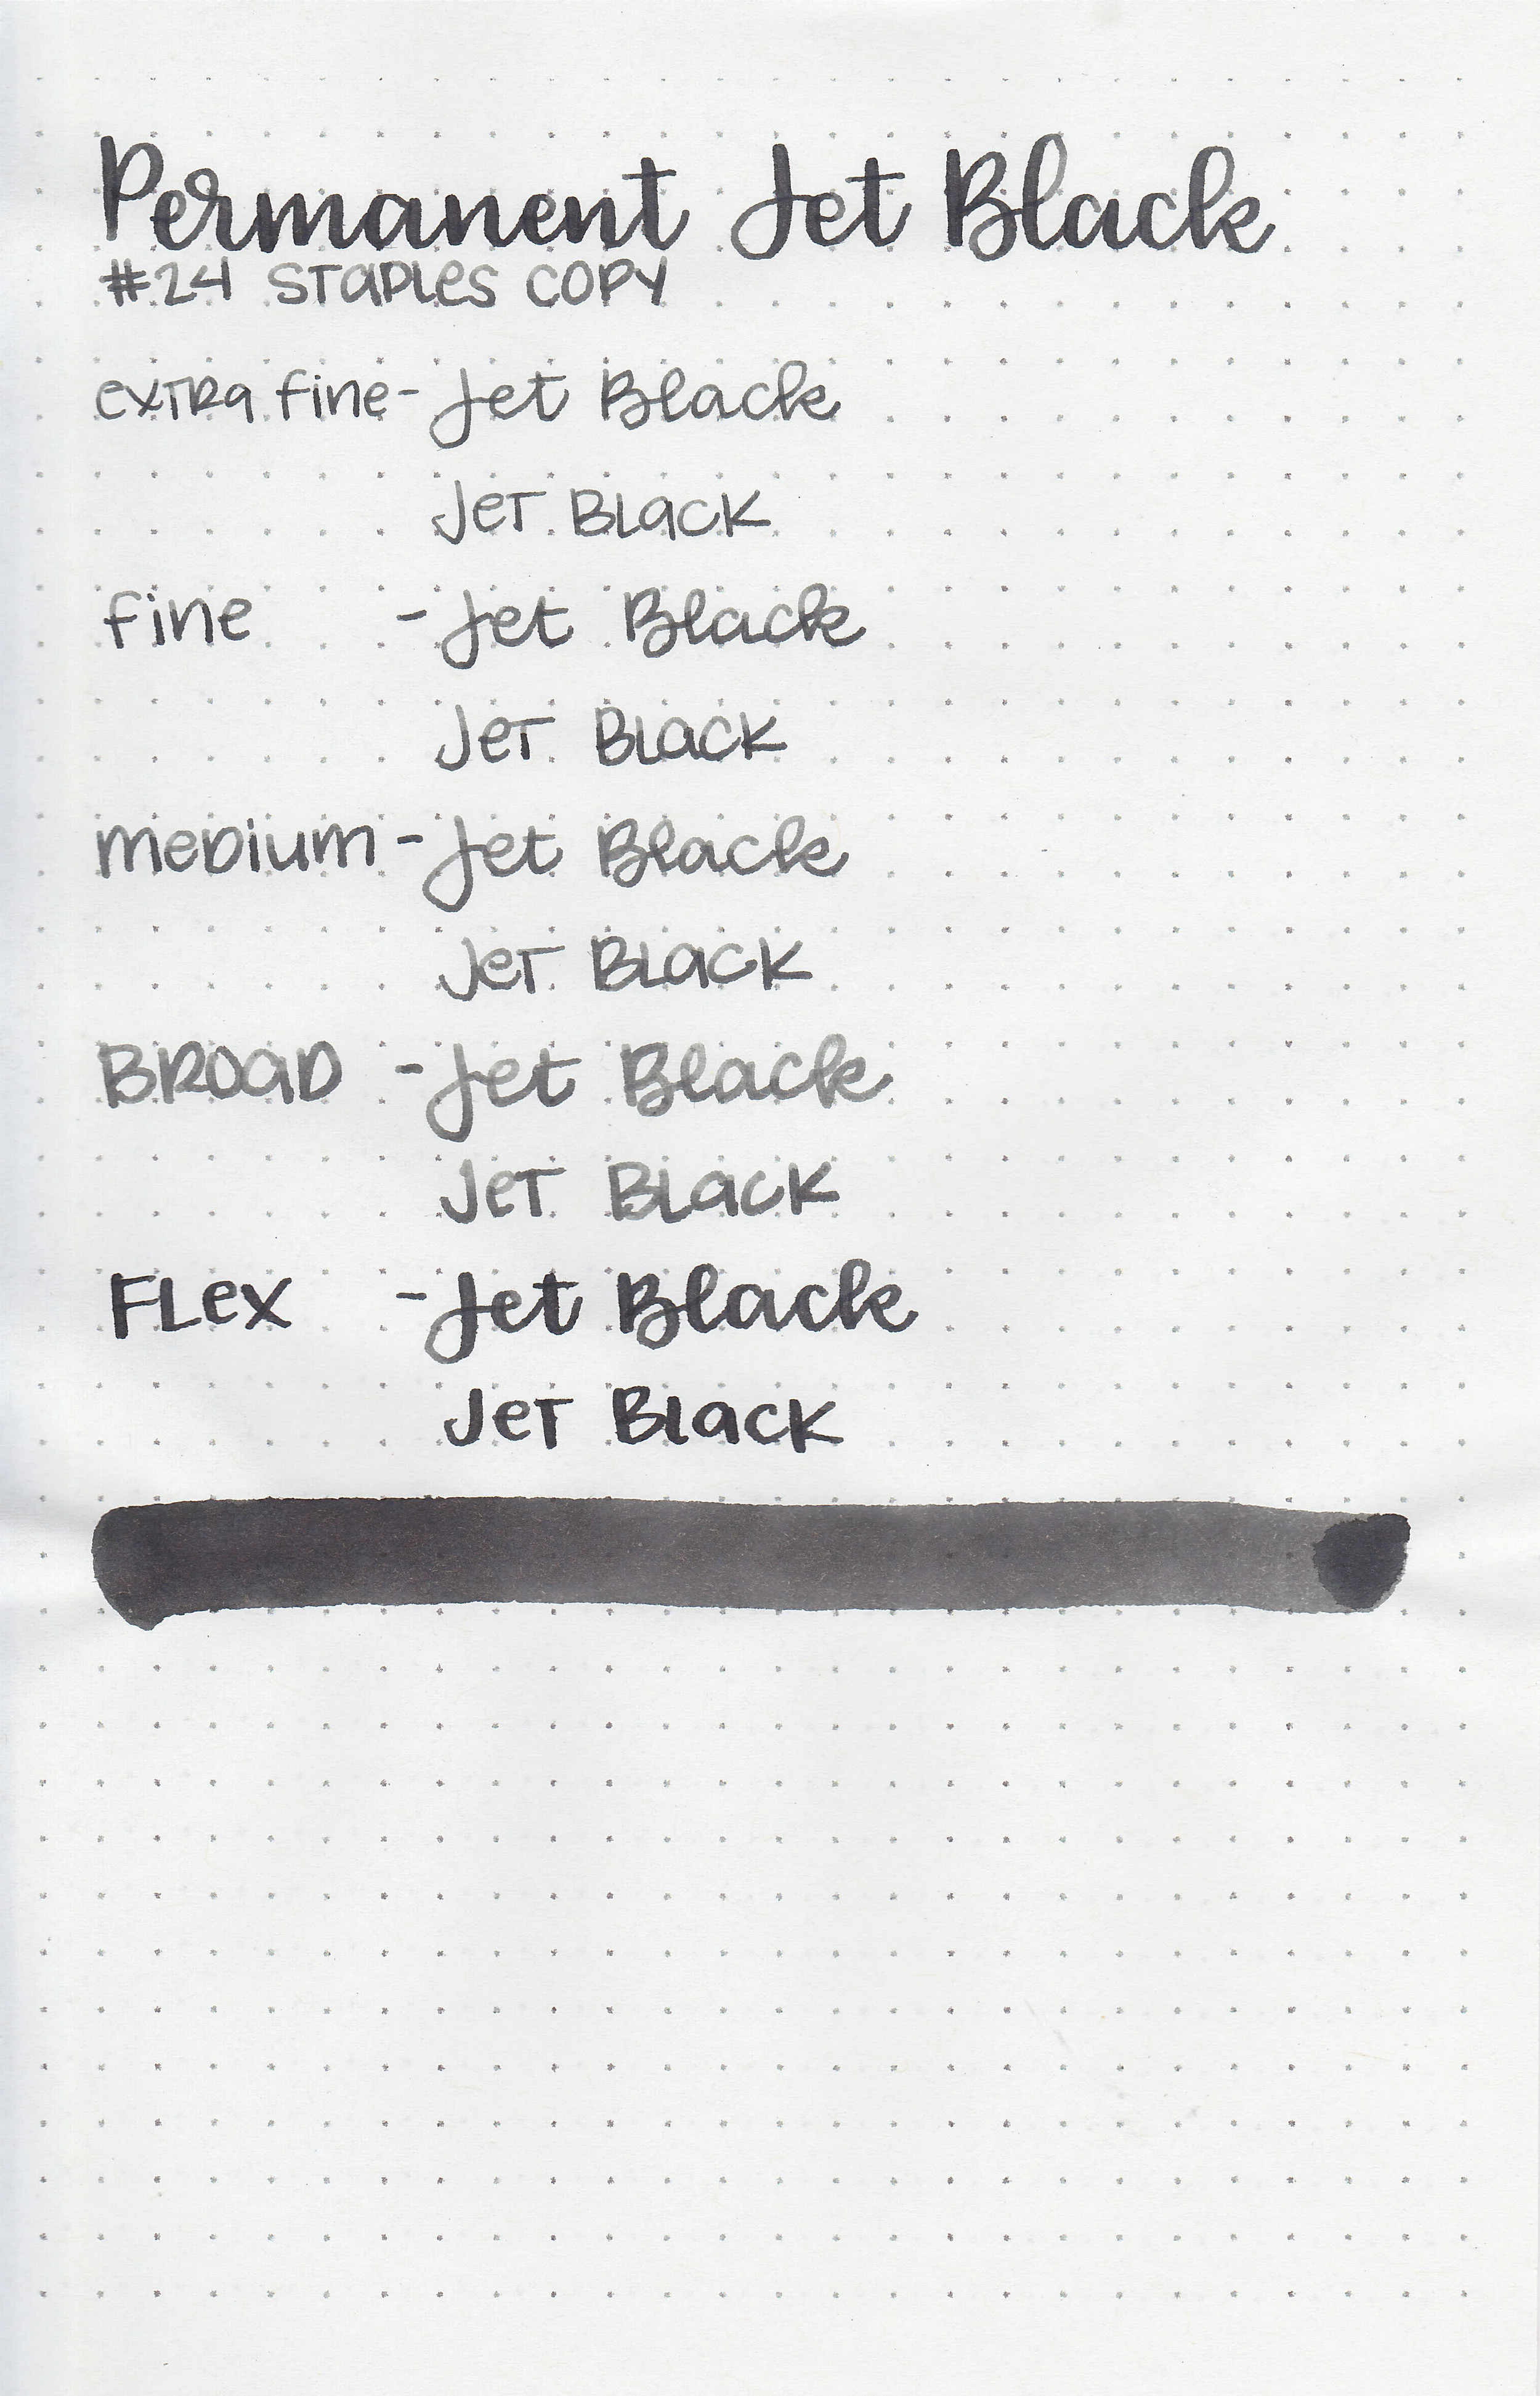 Permanent Jet Black
#24 STAPLES COPY
extra fine - Jet Black
Jet Black
fine - Jet Black
Jet Black
medium - Jet Black
Jet Black
BROAD - Jet Black
Jet Black
Flex - Jet Black
Jet Black